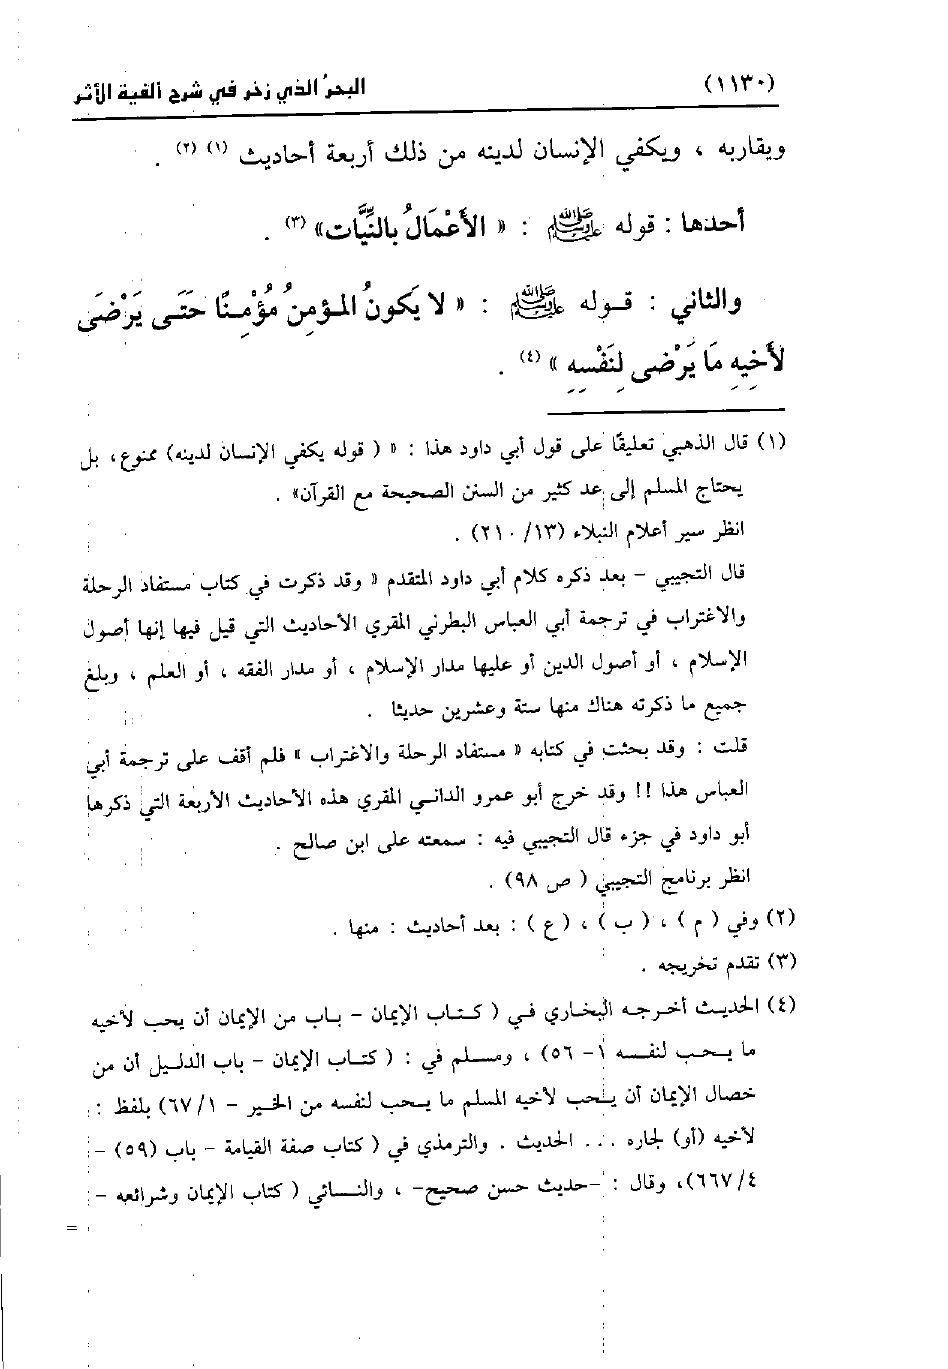 (١١٣٠) البحرُ الذي زخر في شرح ألفية الأثر
ويقاربه ، ويكفي الإنسان لدينه من ذلك أربعة أحاديث (١) (٢) .
أحدها : قوله ﷺ : « الأَعْمَالُ بالنِّيَّات» (٣) .
والثاني : قوله ﷺ : « لا يَكونُ المؤمنُ مُؤْمِنًا حَتَى يَرْضَى
لأَخِيهِ مَا يَرْضى لِنَفْسِهِ » (٤) .
(١) قال الذهبي تعليقًا على قول أبي داود هذا : « ( قوله يكفي الإنسان لدينه) ممنوع، بل
يحتاج المسلم إلى عد كثير من السنن الصحيحة مع القرآن» .
انظر سير أعلام النبلاء (١٣/ ٢١٠) .
قال التجيبي – بعد ذكره كلام أبي داود المتقدم « وقد ذكرت في كتاب مستفاد الرحلة
والاغتراب في ترجمة أبي العباس البطرني المقري الأحاديث التي قيل فيها إنها أصول
الإسلام ، أو أصول الدين أو عليها مدار الإسلام ، أو مدار الفقه ، أو العلم ، وبلغ
جميع ما ذكرته هناك منها ستة وعشرين حديثا .
قلت : وقد بحثت في كتابه « مستفاد الرحلة والاغتراب » فلم أقف على ترجمة أبي
العباس هذا !! وقد خرج أبو عمرو الداني المقري هذه الأحاديث الأربعة التي ذكرها
أبو داود في جزء قال التجيبي فيه : سمعته على ابن صالح .
انظر برنامج التجيبي ( ص ٩٨) .
(٢) وفي ( م ) ، ( ب ) ، ( ع ) : بعد أحاديث : منها .
(٣) تقدم تخريجه .
(٤) الحديث أخرجه البخاري في ( كتاب الإيمان – باب من الإيمان أن يحب لأخيه
ما يحب لنفسه ١- ٥٦) ، ومسلم في : ( كتاب الإيمان – باب الدليل أن من
خصال الإيمان أن يحب لأخيه المسلم ما يحب لنفسه من الخير – ٦٧/١) بلفظ :
لأخيه (أو) لجاره ... الحديث . والترمذي في ( كتاب صفة القيامة – باب (٥٩) –
٦٦٧/٤)، وقال : –حديث حسن صحيح– ، والنسائي ( كتاب الإيمان وشرائعه –
=